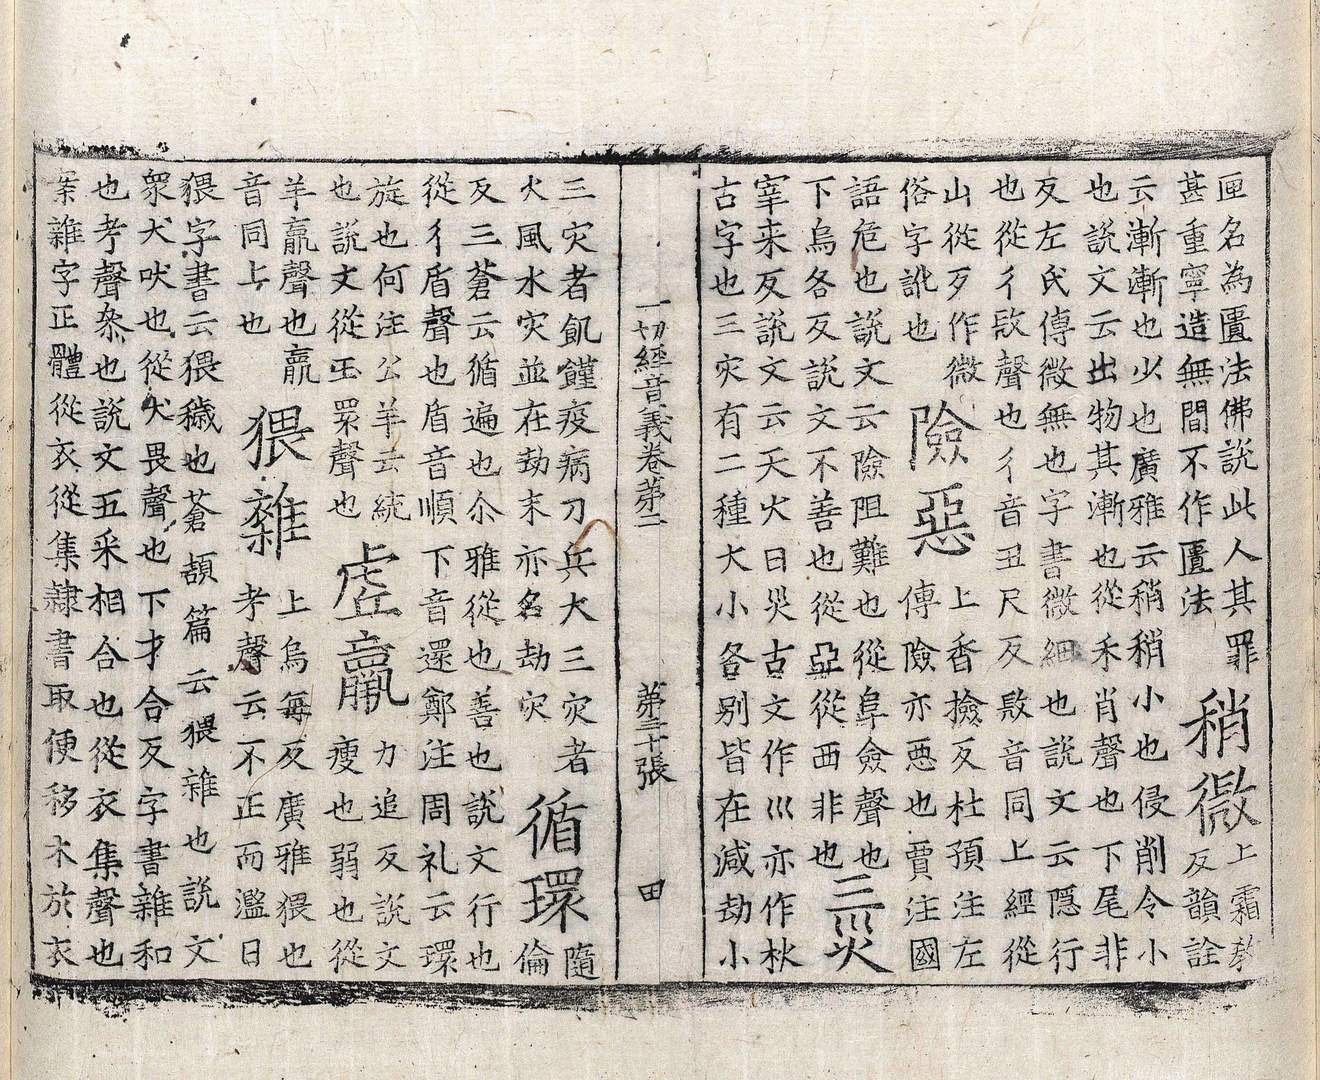 匣名為匱法佛說此人其罪
甚重寧造無間不作匱法
稍微
上霜教
反韻詮
云漸漸也少也廣雅云稍稍小也侵削令小
也說文云出物其漸也從禾肖聲也下尾非
反左氏傳微無也字書微細也說文云隱行
也從彳𢼸聲也彳音丑尺反𢼸音同上經從
山從歹作微
俗字訛也
險惡
上香撿反杜預注左
傳險亦惡也賈注國
語危也說文云險阻難也從阜僉聲也
下烏各反說文不善也從亞從西非也
三災
宰来反說文云天火曰災古文作巛亦作秋
古字也三灾有二種大小各別皆在減劫小
一切經音義卷苐二 苐三十張 田
三灾者飢饉疫病刀兵大三灾者
火風水灾並在劫末亦名劫灾
循環
隨
倫
反三蒼云循遍也尒雅從也善也說文行也
從彳盾聲也盾音順下音還鄭注周礼云環
旋也何注公羊云統
也說文從王睘聲也
虛羸
力追反說文
瘦也弱也從
羊𣎆聲也𣎆
音同上也
猥雜
上烏每反廣雅猥也
考聲云不正而濫曰
猥字書云猥穢也蒼頡篇云猥雜也說文
衆犬吠也從犬畏聲也下才合反字書雜和
也考聲叅也說文五采相合也從衣集聲也
案雜字正體從衣從集隷書取便移木於衣